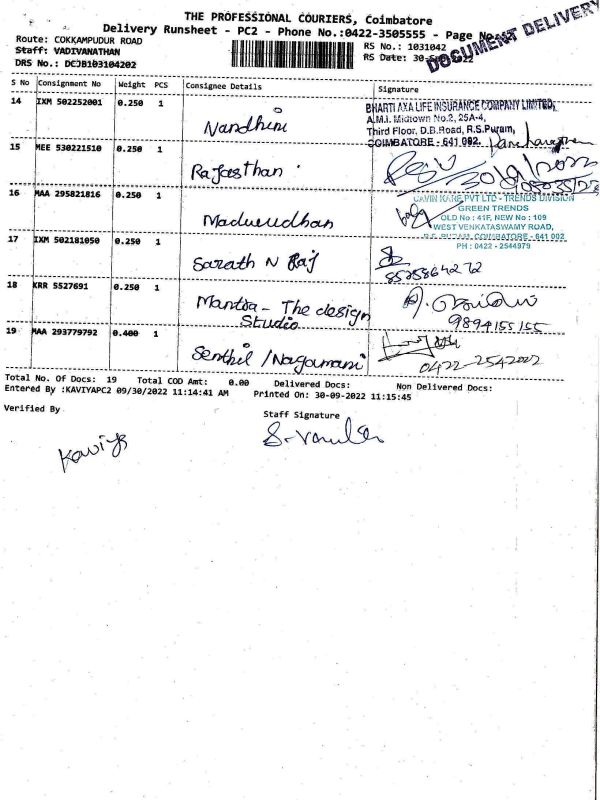 THE PROFESSIONAL COURIERS, Coimbatore
Delivery Runsheet - PC2 - Phone No.:0422-3505555 - Page No.
DOCUMENT DELIVERY
Route: COKKAMPUDUR ROAD
RS No.: 1031042
Staff: VADIVANATHAN
RS Date: 30-Sep-2022
DRS No.: DCJB103104202
S No Consignment No Weight PCS Consignee Details Signature
14 IXM 502252001 0.250 1 Nandhini
BHARTI AXA LIFE INSURANCE COMPANY LIMITED,
A.M.I. Midtown No.2, 25A-4,
Third Floor, D.B.Road, R.S.Puram,
COIMBATORE - 641 002.
15 MEE 530221510 0.250 1 Rajasthan
30/9/2022
16 MAA 295821816 0.250 1 Maduerudhan
CAVIN KARE PVT LTD - TRENDS DIVISION
GREEN TRENDS
OLD No : 41F, NEW No : 109
WEST VENKATASWAMY ROAD,
R.S. PURAM, COIMBATORE - 641 002
PH : 0422 - 2544979
17 IXM 502181050 0.250 1 Sarath N Raj
18 KRR 5527691 0.250 1 Mantra - The design
Studio
9894155155
19 MAA 293779792 0.400 1 Senthil / Nagamani
0422-2542002
Total No. Of Docs: 19 Total COD Amt: 0.00 Delivered Docs: Non Delivered Docs:
Entered By :KAVIYAPC2 09/30/2022 11:14:41 AM Printed On: 30-09-2022 11:15:45
Verified By
Staff Signature
Kaviya